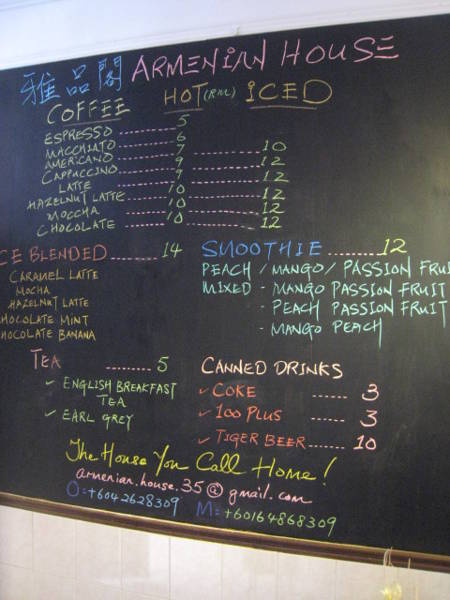 雅品閣 ARMENIAN HOUSE
COFFEE HOT (RM) ICED
ESPRESSO 5
MACCHIATO 6
AMERICANO 7 10
CAPPUCCINO 9 12
LATTE 9 12
HAZELNUT LATTE 10 12
MOCCHA 10 12
CHOCOLATE 10 12
CE BLENDED 14
CARAMEL LATTE
MOCHA
HAZELNUT LATTE
HOCOLATE MINT
HOCOLATE BANANA
SMOOTHIE 12
PEACH / MANGO / PASSION FRUI
MIXED - MANGO PASSION FRUIT
- PEACH PASSION FRUIT
- MANGO PEACH
TEA 5
✓ ENGLISH BREAKFAST
TEA
✓ EARL GREY
CANNED DRINKS
✓ COKE 3
✓ 100 PLUS 3
✓ TIGER BEER 10
The House You Call Home!
armenian.house.35@gmail.com
O: +6042628309 M: +60164868309